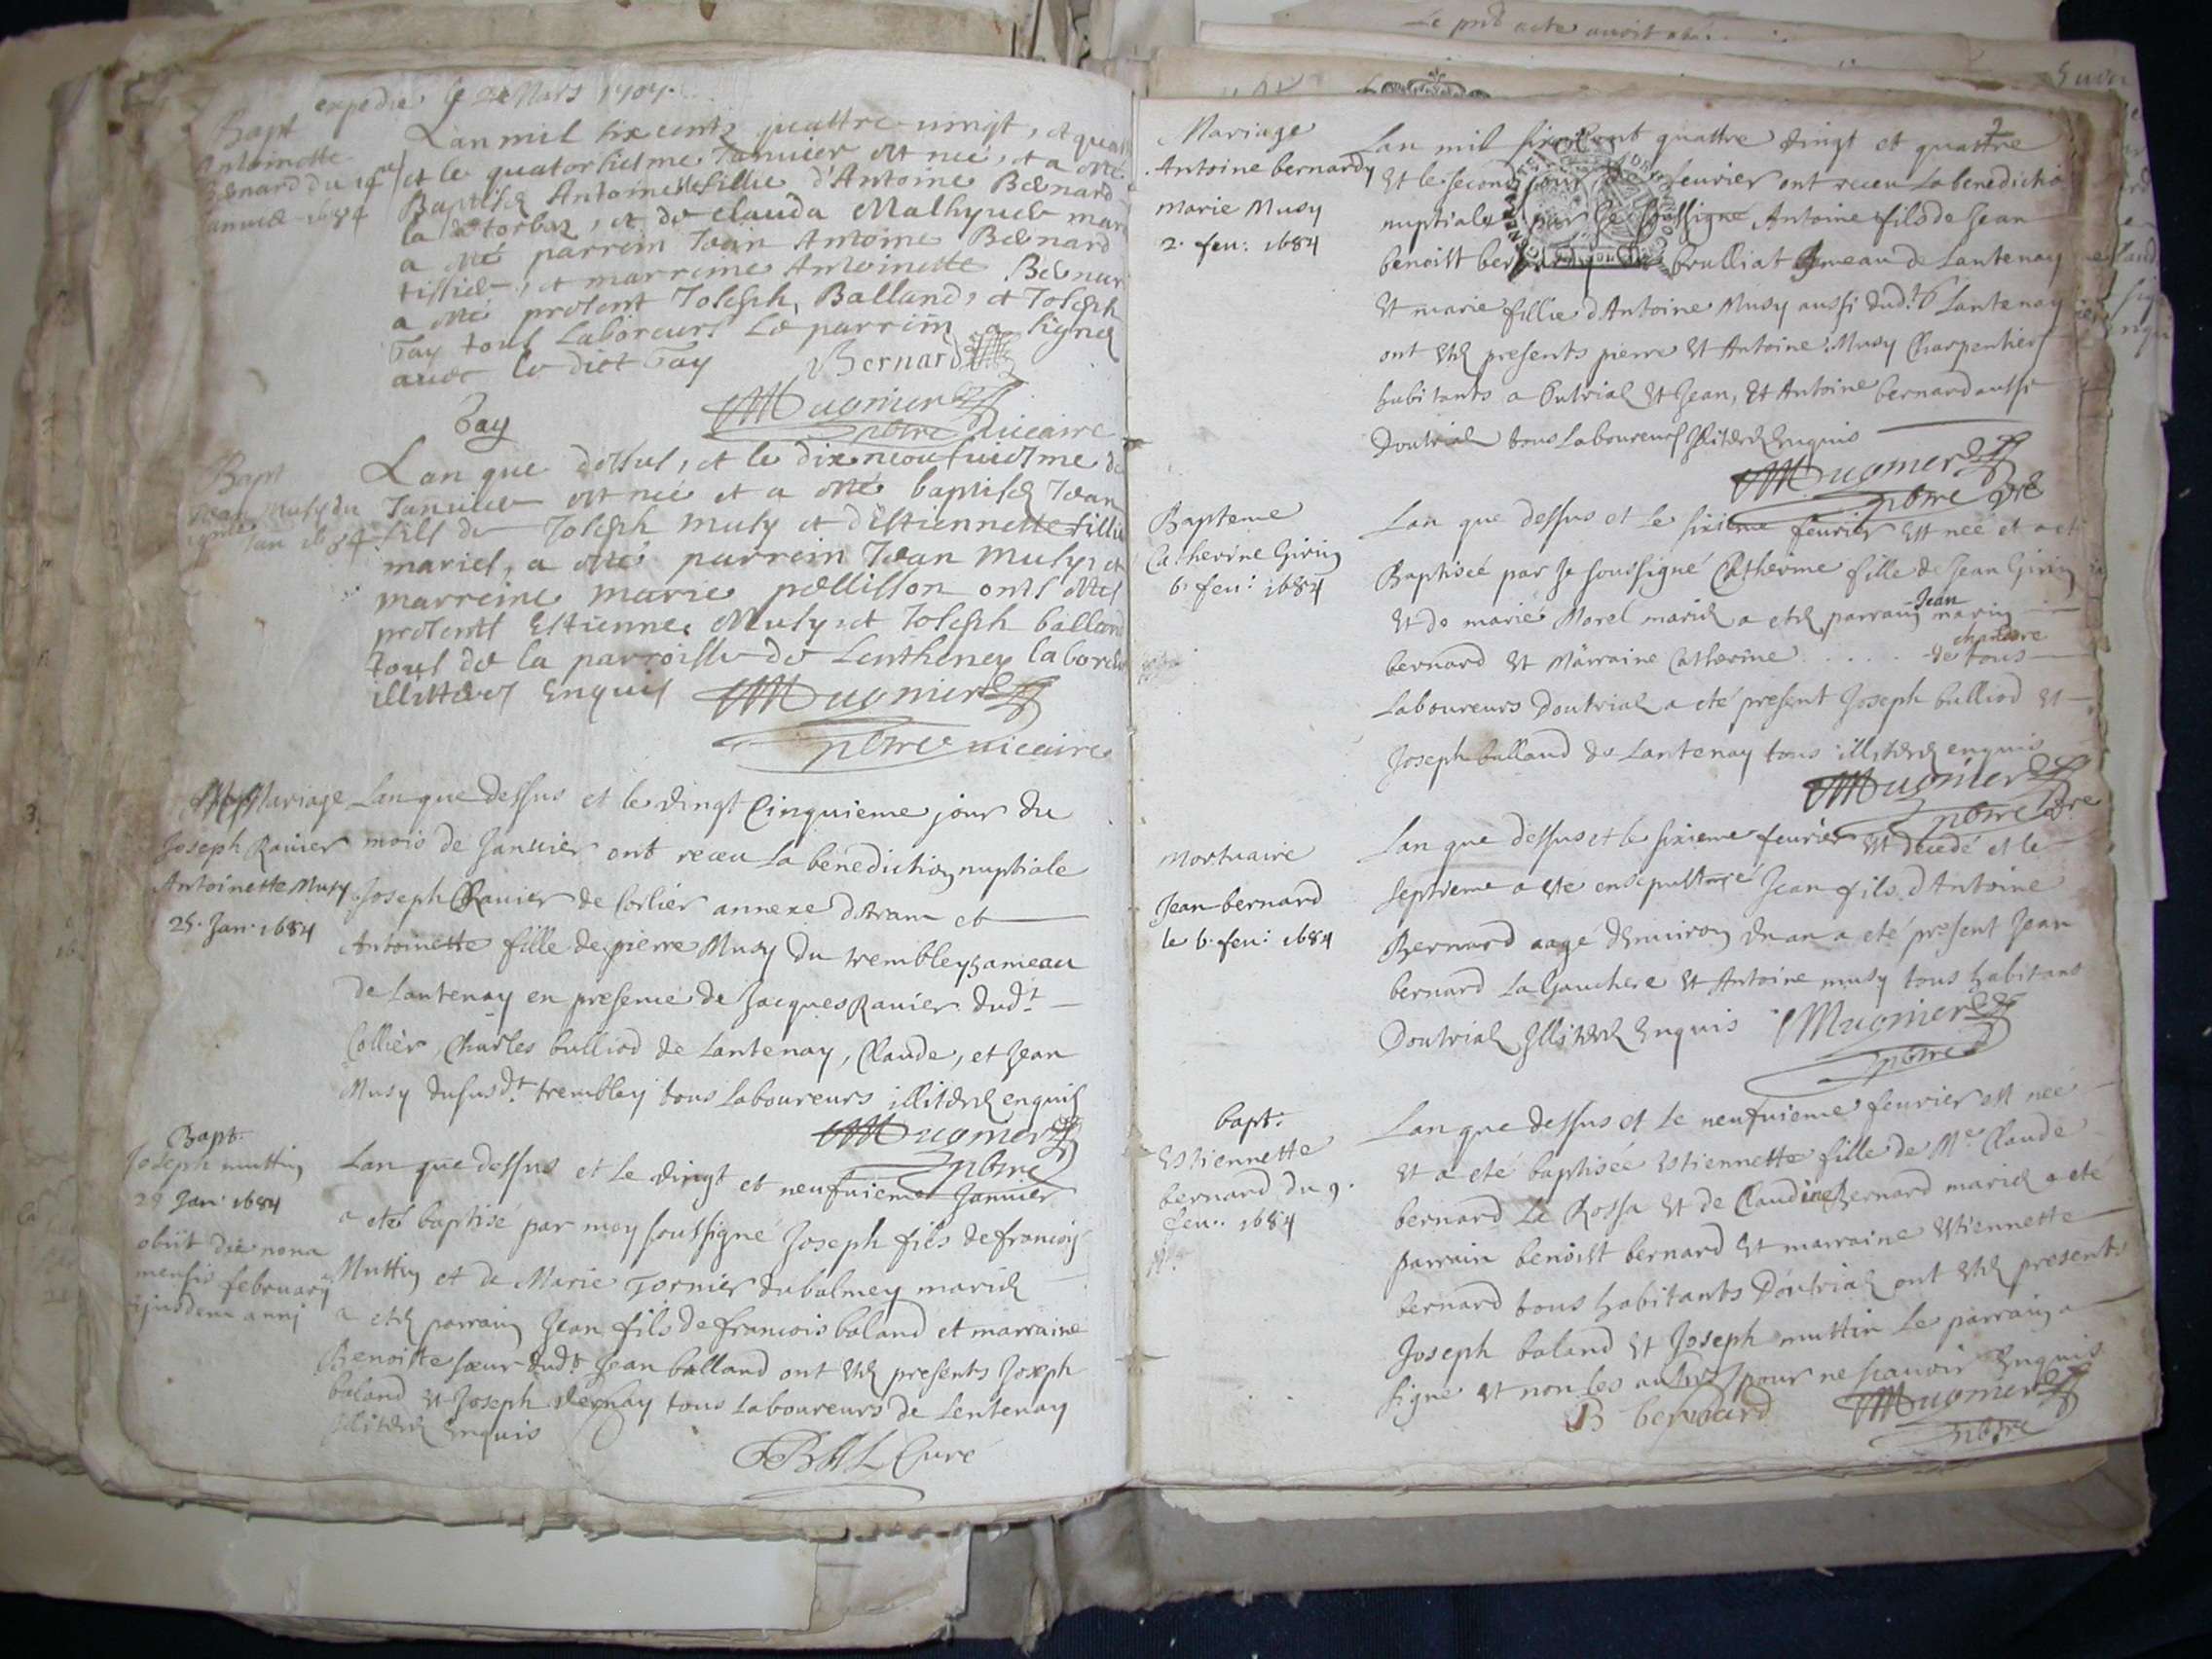 expedie le 24 Mars 1707.
Bapt
Antoinette
Bernard du 14me
Janvier 1684
Lan mil six cents quattre vingt, et quat
et le quatorsiesme Janvier est née, et a esté
Baptisée Antoinette fillie d'Antoine Bernard
et de Clauda Malhyuer mari
a esté parrein Jean Antoine Bernard
tissier, et marreine Antoinette Bernar
a esté present Joseph, Balland, et Joseph
Tay tous Laboreurs Le parrein a signé
avec le dict Tay Bernard
Tay
Mugnier
pbre vicaire
Bapt
Jean Musy du
Jan 1684
Lan que dessus, et le dixneoufuiesme de
Janvier est né et a esté baptisé Jean
fils de Joseph Musy et d'Estiennette fillie
mariés, a esté parrein Jean Musy, et
marreine marie pellisson onts estés
presents Estienne Musy, et Joseph balland
tous de la parroisse de Lentheney laboreur
illitterés Enquis
Mugnier
pbre vicaire
Mariage
Joseph Ravier
Antoinette Musy
25. Jan: 1684
Lan que dessus et le vingt Cinquieme jour du
mois de Janvier ont receu La bénédiction nuptiale
Joseph Ravier de Corlier annexe d'Aram et
Antoinette fille de pierre Musy du trembley hameau
de Lantenay en presence de Jacques Ravier dudt
Collier, Charles bulliod de Lantenay, Claude, et Jean
Musy dususdt trembley tous Laboureurs illiterés enquis
Mugnier
pbre
Bapt.
Joseph muttin
29 Jan: 1684
obiit die nona
mensis february
Ejusdem anni
Lan que dessus et le vingt et neufuieme Janvier
a eté baptisé par moy soussigné Joseph fils de francois
Muttin et de Marie Tornier du balmey mariés
a eté parrain Jean fils de francois baland et marraine
Benoitte sœur dudt Jean balland ont etés presents Joseph
baland et Joseph tous Laboureurs de Lentenay
illiterés Enquis
Curé
2
Mariage
Antoine bernard
marie Musy
2. feu: 1684
Lan mil six Cent quattre vingt et quattre
Et le second jour de feurier ont receu La benedictio
nuptiale par Je soussigné Antoine fils de Jean
benoist bernard brulliat hameau de Lantenay
Et marie fillie d'Antoine Musy aussi dudt Lantenay
ont etés presents pierre et Antoine Musy Charpentiers
habitants a Outriaz Et Jean, Et Antoine bernard aussi
Doutriaz tous Laboureurs Illiterés Enquis
Mugnier
pbre vre
Bapteme
Catherine Girin
6. feu: 1684
Lan que dessus et le sixieme feurier Est née et a eté
Baptisée par Je soussigné Catherine fille de Jean Girin
Et de marie Morel mariés a eté parrain Jean marin
bernard Et Marraine Catherine . . . . . de tous
Laboureurs Doutriaz a eté present Joseph bulliod Et
Joseph balland de Lantenay tous illiterés enquis
Mugnier
pbre vre
Mortuaire
Jean bernard
le 6. feu: 1684
Lan que dessus et le sixieme feurier Est décedé et le
septieme a eté ensepulturé Jean fils d'Antoine
Bernard aagé d'Enuiron vn an a eté présent Jean
bernard La Gauchere Et Antoine musy tous habitans
Doutriaz Illiterés Enquis
Mugnier
pbre
bapt:
Estiennette
bernard du 9.
feu: 1684
Lan que dessus et le neufuieme feurier est née
Et a eté baptisée Estiennette fille de Me Claude
bernard Le Rossa Et de Claudine Bernard mariés a eté
parrain benoist bernard Et marraine Estiennette
bernard tous habitants Doutriaz ont etés presents
Joseph baland Et Joseph muttin Le parrain a
signé Et non les autres pour ne scauoir Enquis
B bernard
Mugnier
pbre